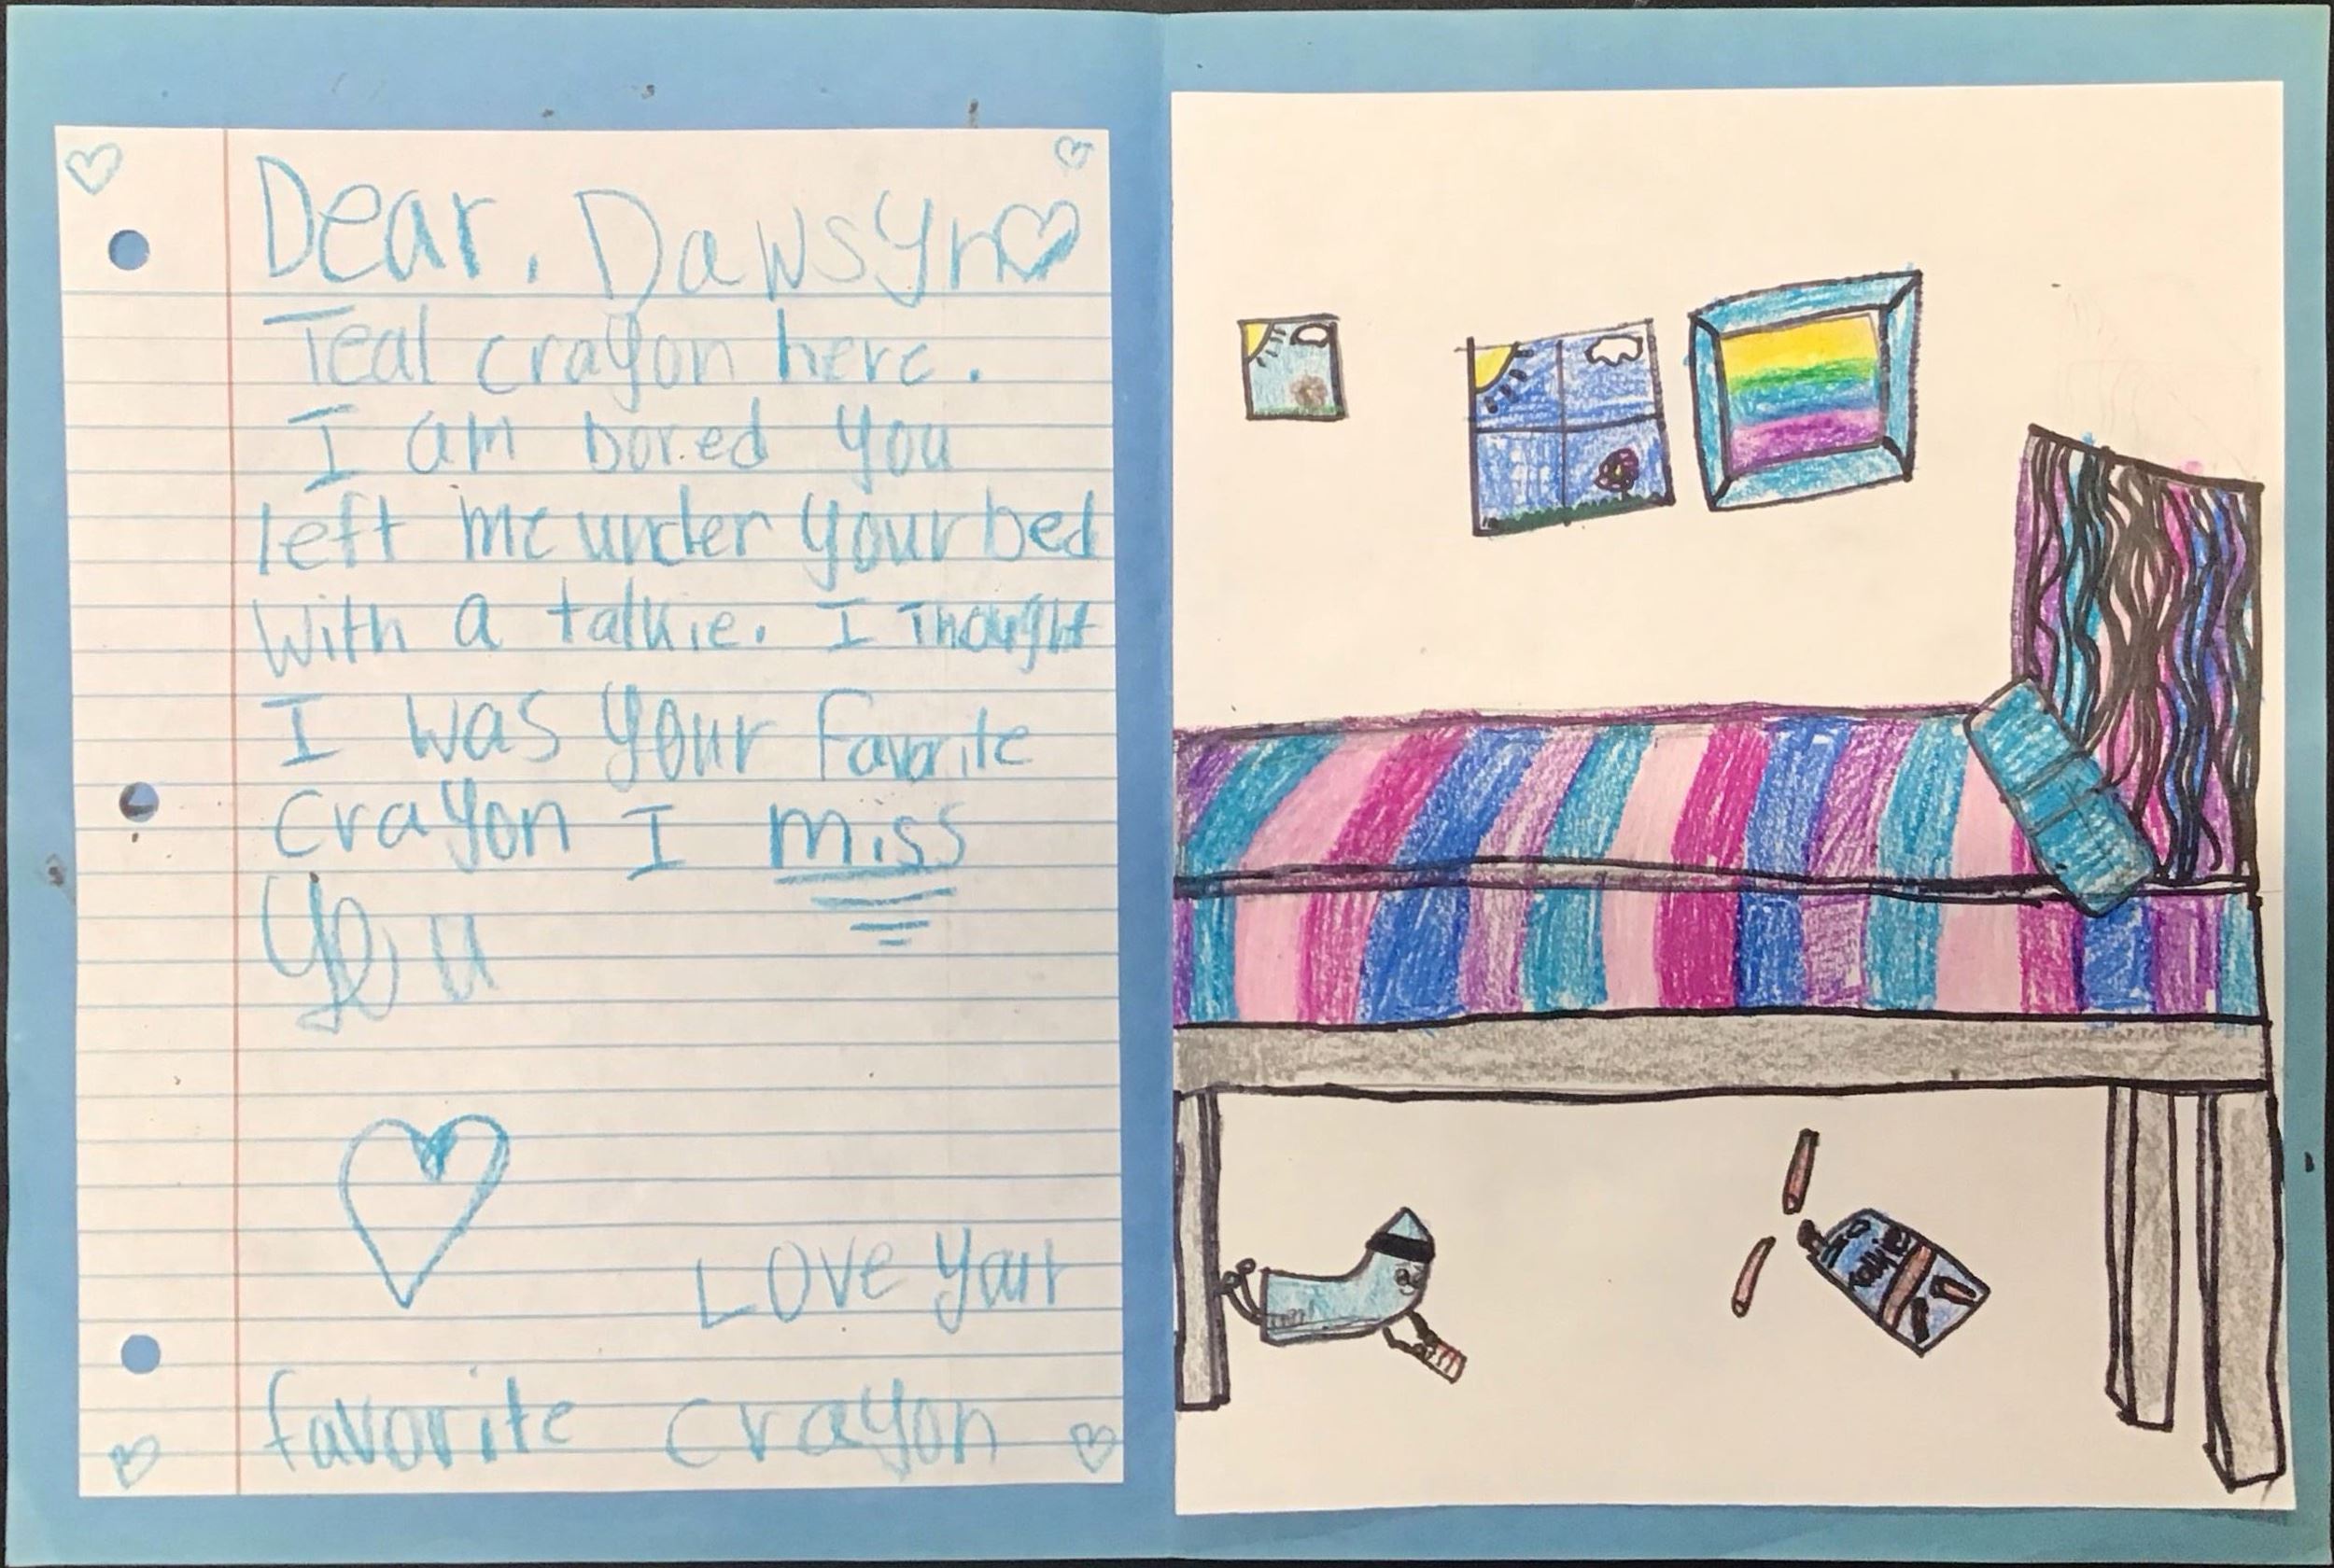 Dear, Dawsyn
Teal crayon here.
I am bored you
left me under your bed
with a talkie. I Thought
I was your favorite
crayon I miss
You
Love your
favorite crayon